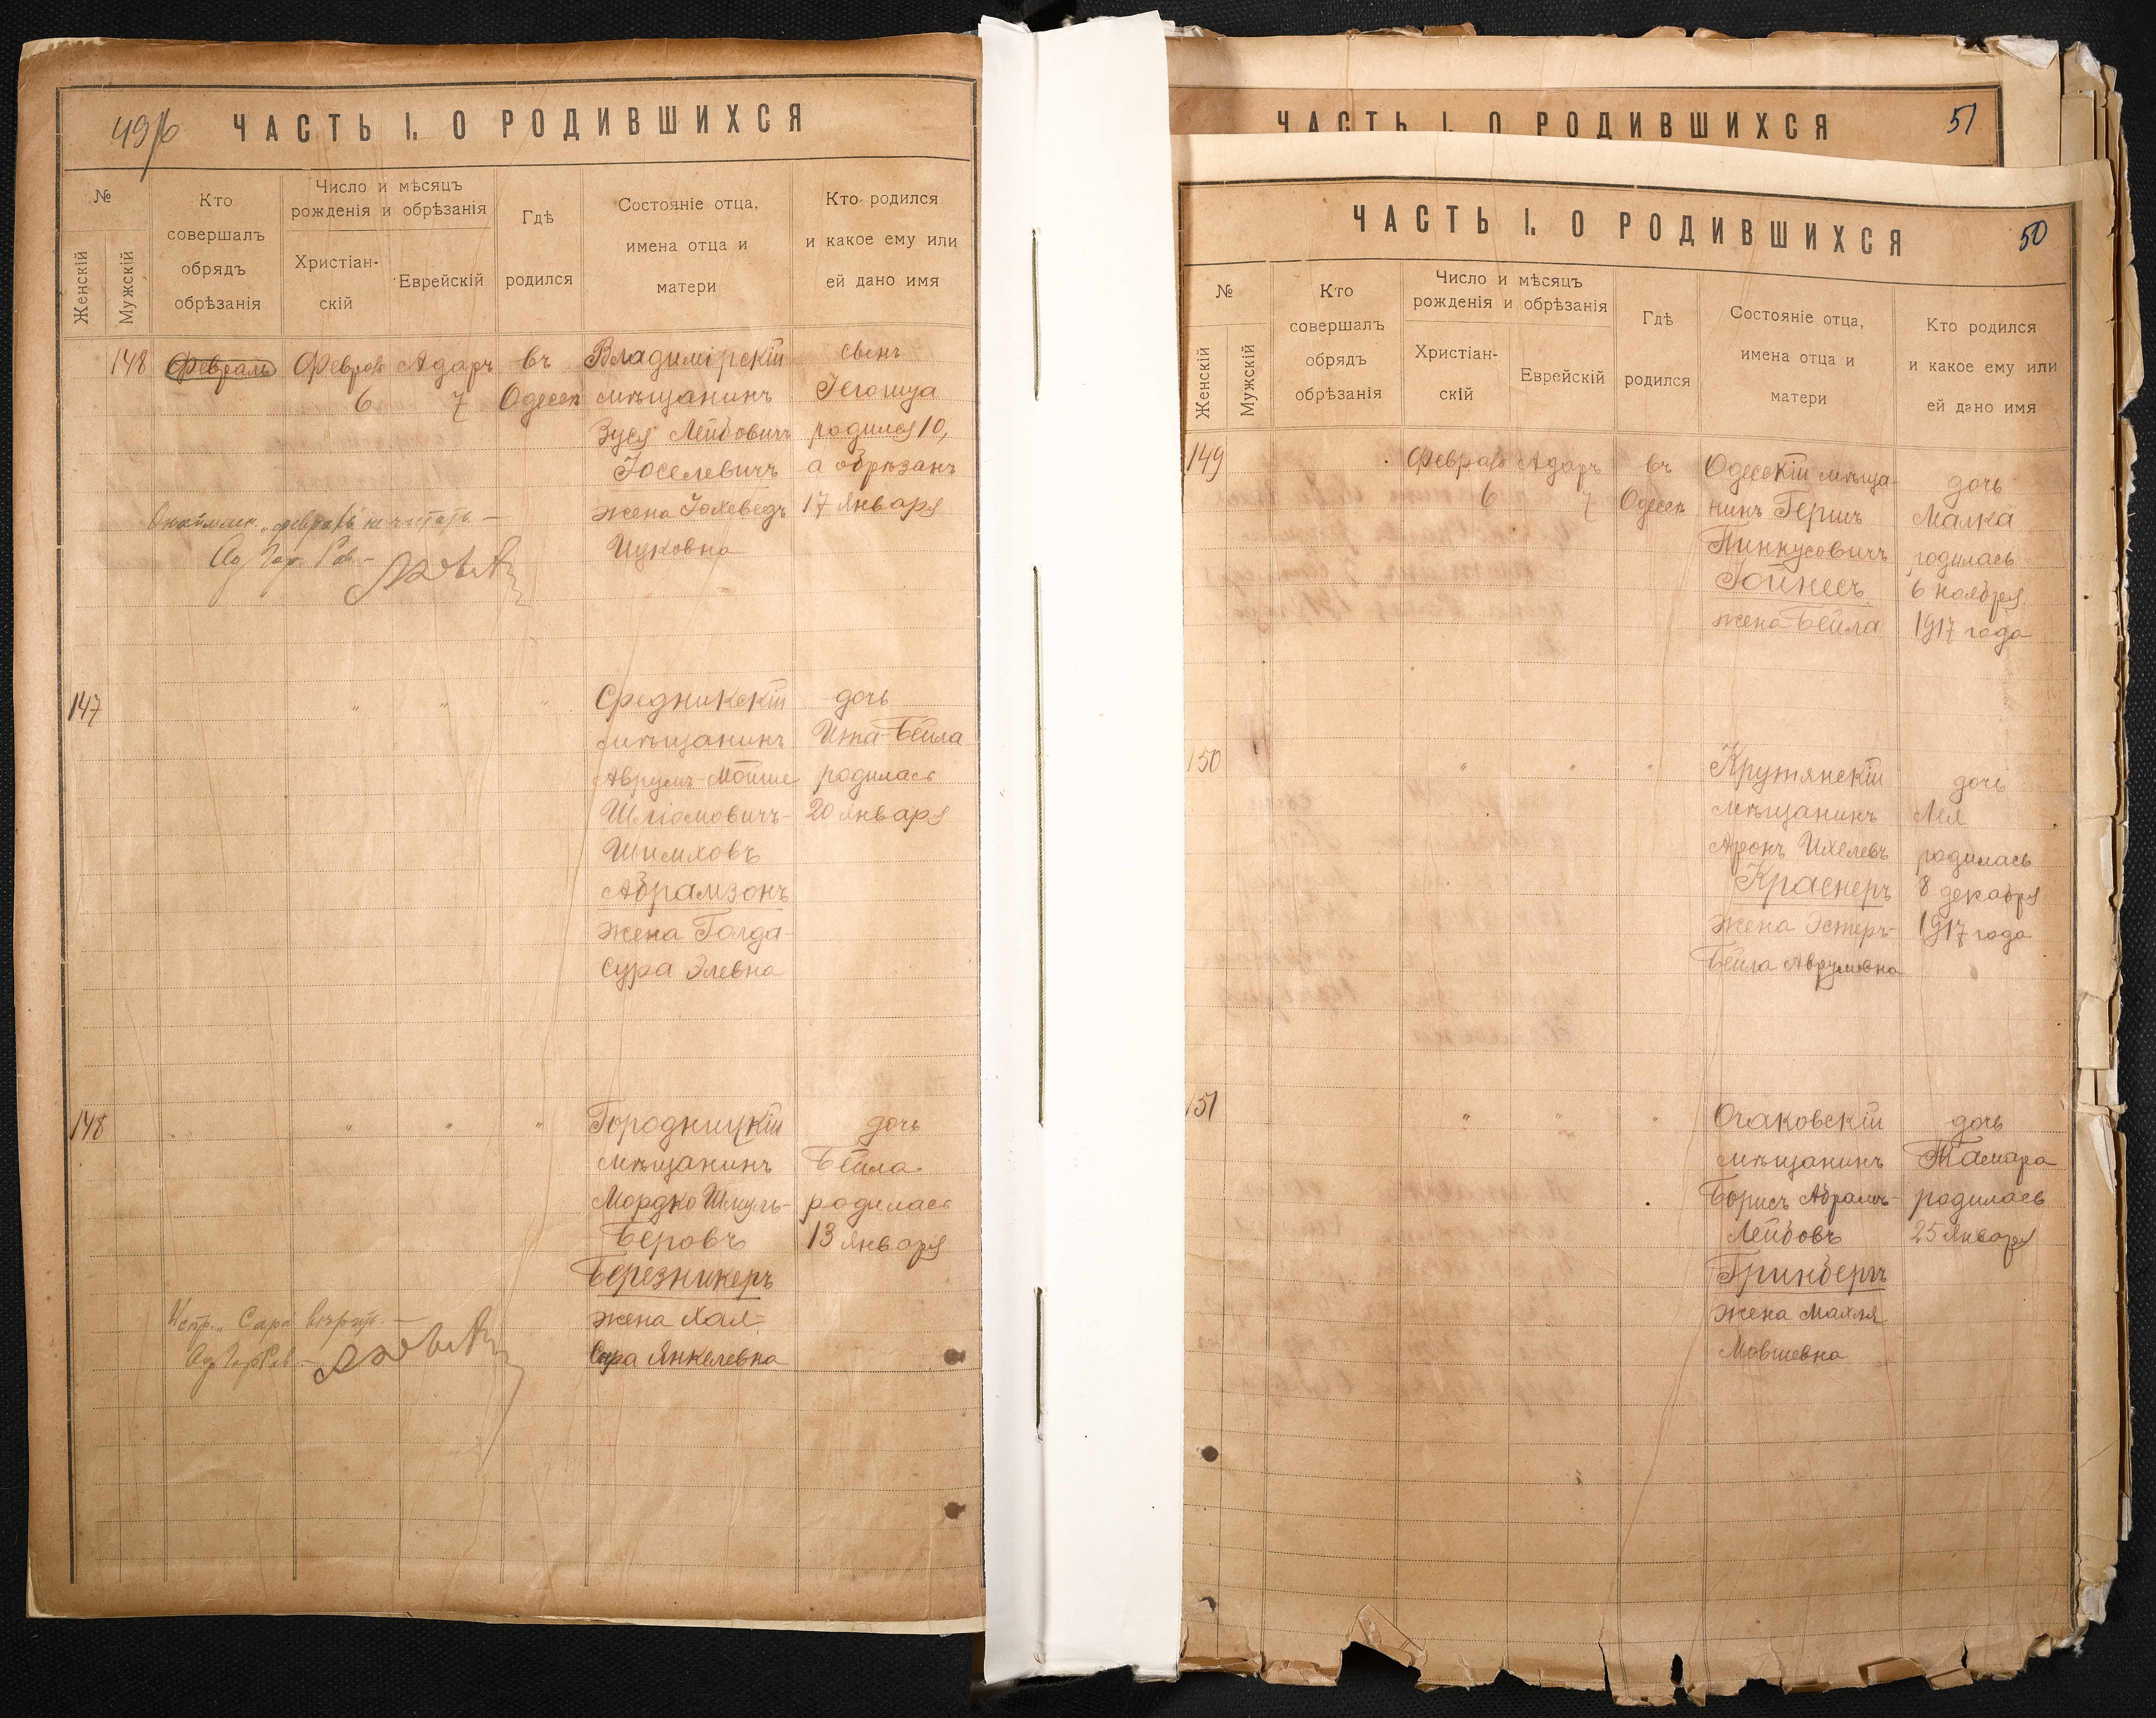 49/б
ЧАСТЬ I. О РОДИВШИХСЯ
№
Женскій
Мужскій
Кто
совершалъ
обрядъ
обрѣзанія
Число и мѣсяцъ
рожденія и обрѣзанія
Христіан-
скій
Еврейскій
Гдѣ
родился
Состояніе отца,
имена отца и
матери
Кто родился
и какое ему или
ей дано имя
148
Февраль
Февраль
6
Адаръ
7
въ
Одессѣ
Владимірскій
мѣщанинъ
Зуся Лейбовичъ
Іоселевичъ
жена Іохеведъ
Ицковна
сынъ
Іегошуа
родился 10,
а обрѣзанъ
17 Января
"февраль" не читать. —
147
" " "
Средникскій
мѣщанинъ
Аврумъ-Мойше
Шліомовичъ-
Шимховъ
Абрамзонъ
жена Голда-
Сура Элевна
дочь
Ита-Бейла
родилась
20 Января
148
" " "
Городницкій
мѣщанинъ
Мордко Шмуль-
Беровъ
Березникеръ
жена Хая-
Сура Янкелевна
дочь
Бейла
родилась
13 Января
Испр. "Сара" вѣрить. —
ЧАСТЬ I. О РОДИВШИХСЯ
51
ЧАСТЬ I. О РОДИВШИХСЯ
50
№
Женскій
Мужскій
Кто
совершалъ
обрядъ
обрѣзанія
Число и мѣсяцъ
рожденія и обрѣзанія
Христіан-
скій
Еврейскій
Гдѣ
родился
Состояніе отца,
имена отца и
матери
Кто родился
и какое ему или
ей дано имя
149
Февраль
6
Адаръ
7
въ
Одессѣ
Одесскій мѣща-
нинъ Гершъ
Пинкусовичъ
Іойнесъ
жена Бейла
дочь
Малка
родилась
6 ноября
1917 года
150
" " "
Крутянскій
мѣщанинъ
Аронъ Ихелевъ
Краснеръ
жена Эстеръ-
Бейла Аврумовна
дочь
Лея
родилась
8 декабря
1917 года
151
" " "
Очаковскій
мѣщанинъ
Борисъ Абрамъ-
Лейбовъ
Гринбергъ
жена Махля
Мовшевна
дочь
Тамара
родилась
25 Января